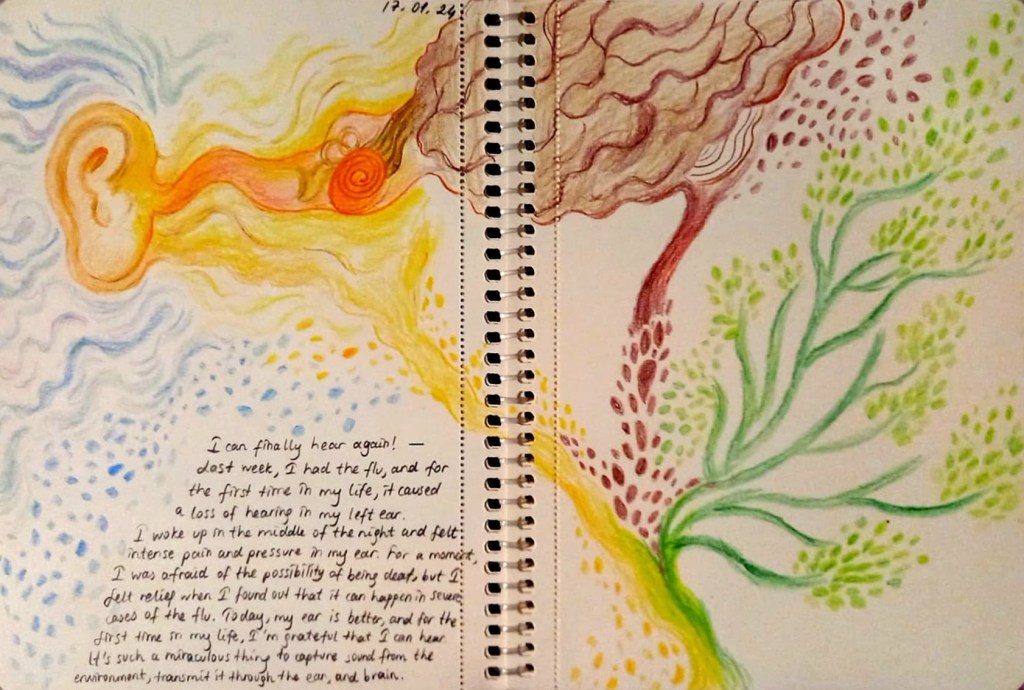 17.01.24
I can finally hear again! —
Last week, I had the flu, and for
the first time in my life, it caused
a loss of hearing in my left ear.
I woke up in the middle of the night and felt
intense pain and pressure in my ear. For a moment,
I was afraid of the possibility of being deaf, but I
felt relief when I found out that it can happen in severe
cases of the flu. Today, my ear is better, and for the
first time in my life, I'm grateful that I can hear.
It's such a miraculous thing to capture sound from the
environment, transmit it through the ear, and brain.